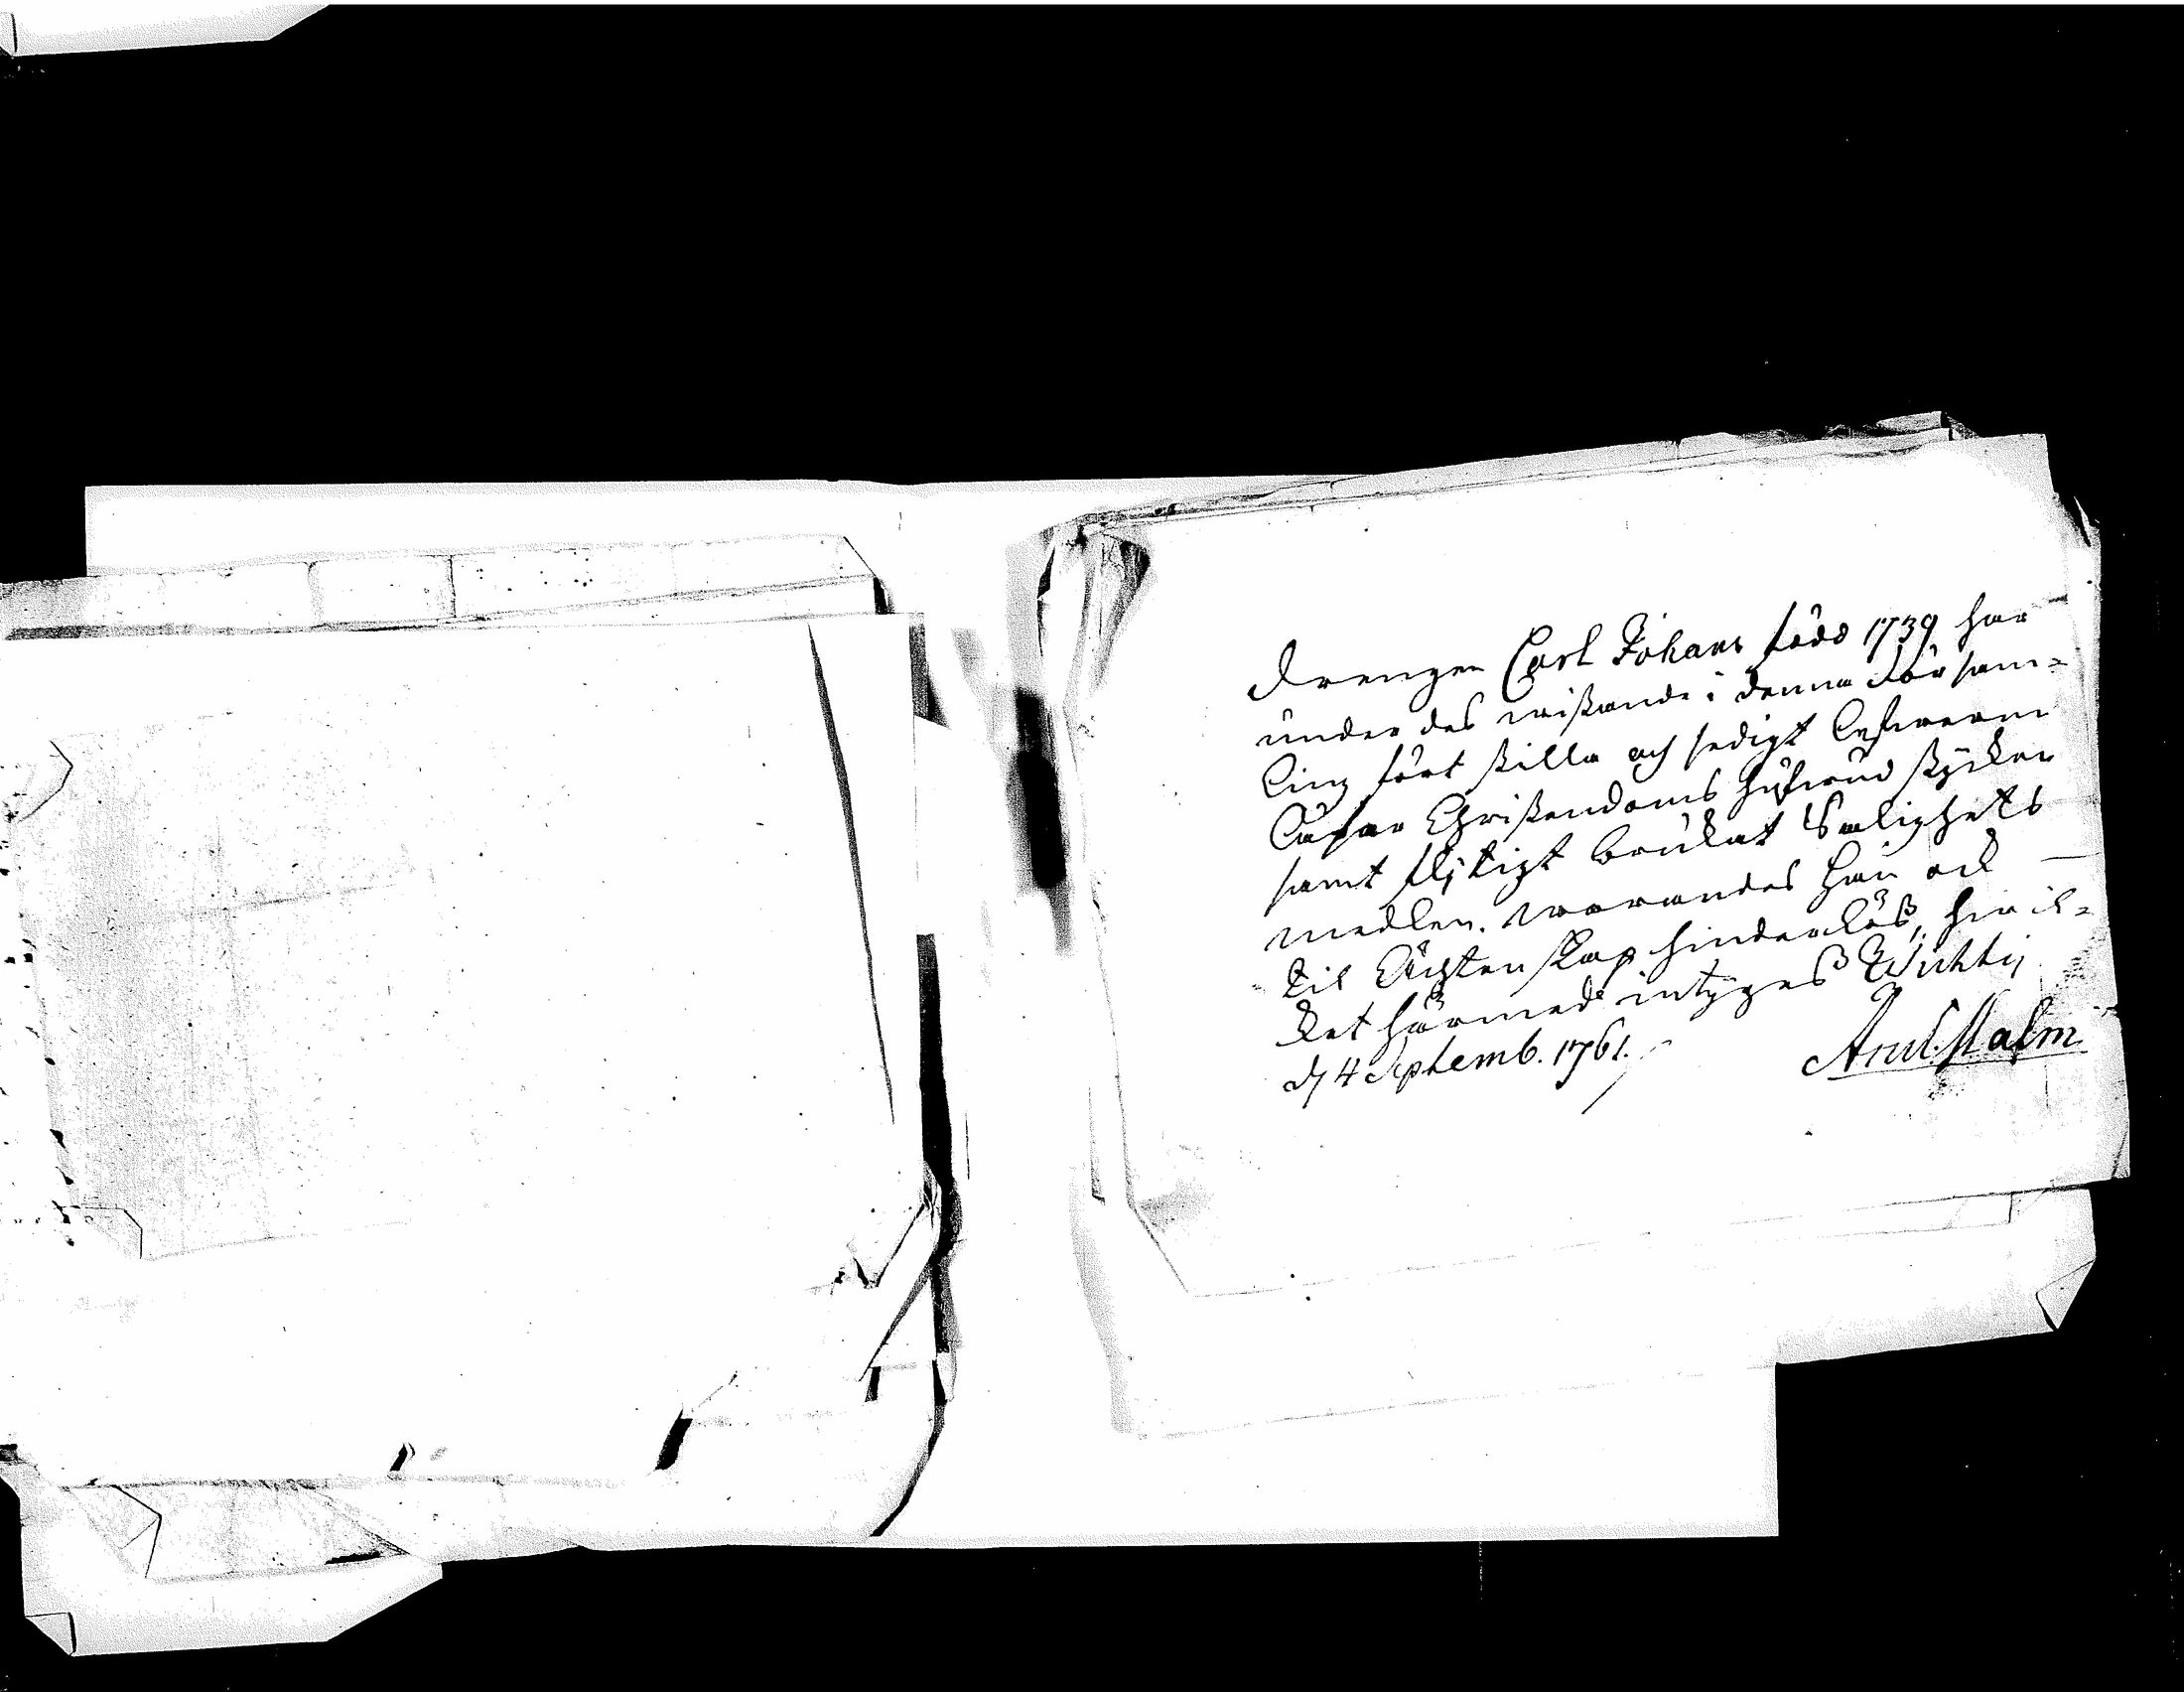 Drengen Carl Johans född 1739 har
under des wistande i denna Försam-
ling fört stilla och sedigt lefwerne
Låfar Christendoms hufwud stycken
samt flijtigt brukat Salighets
medlen. warandes han ock
til Ächtenskap hinderlöß, hwil-
ket härmed intygas Wichtij
d 4 Septemb. 1761.
And. Malm